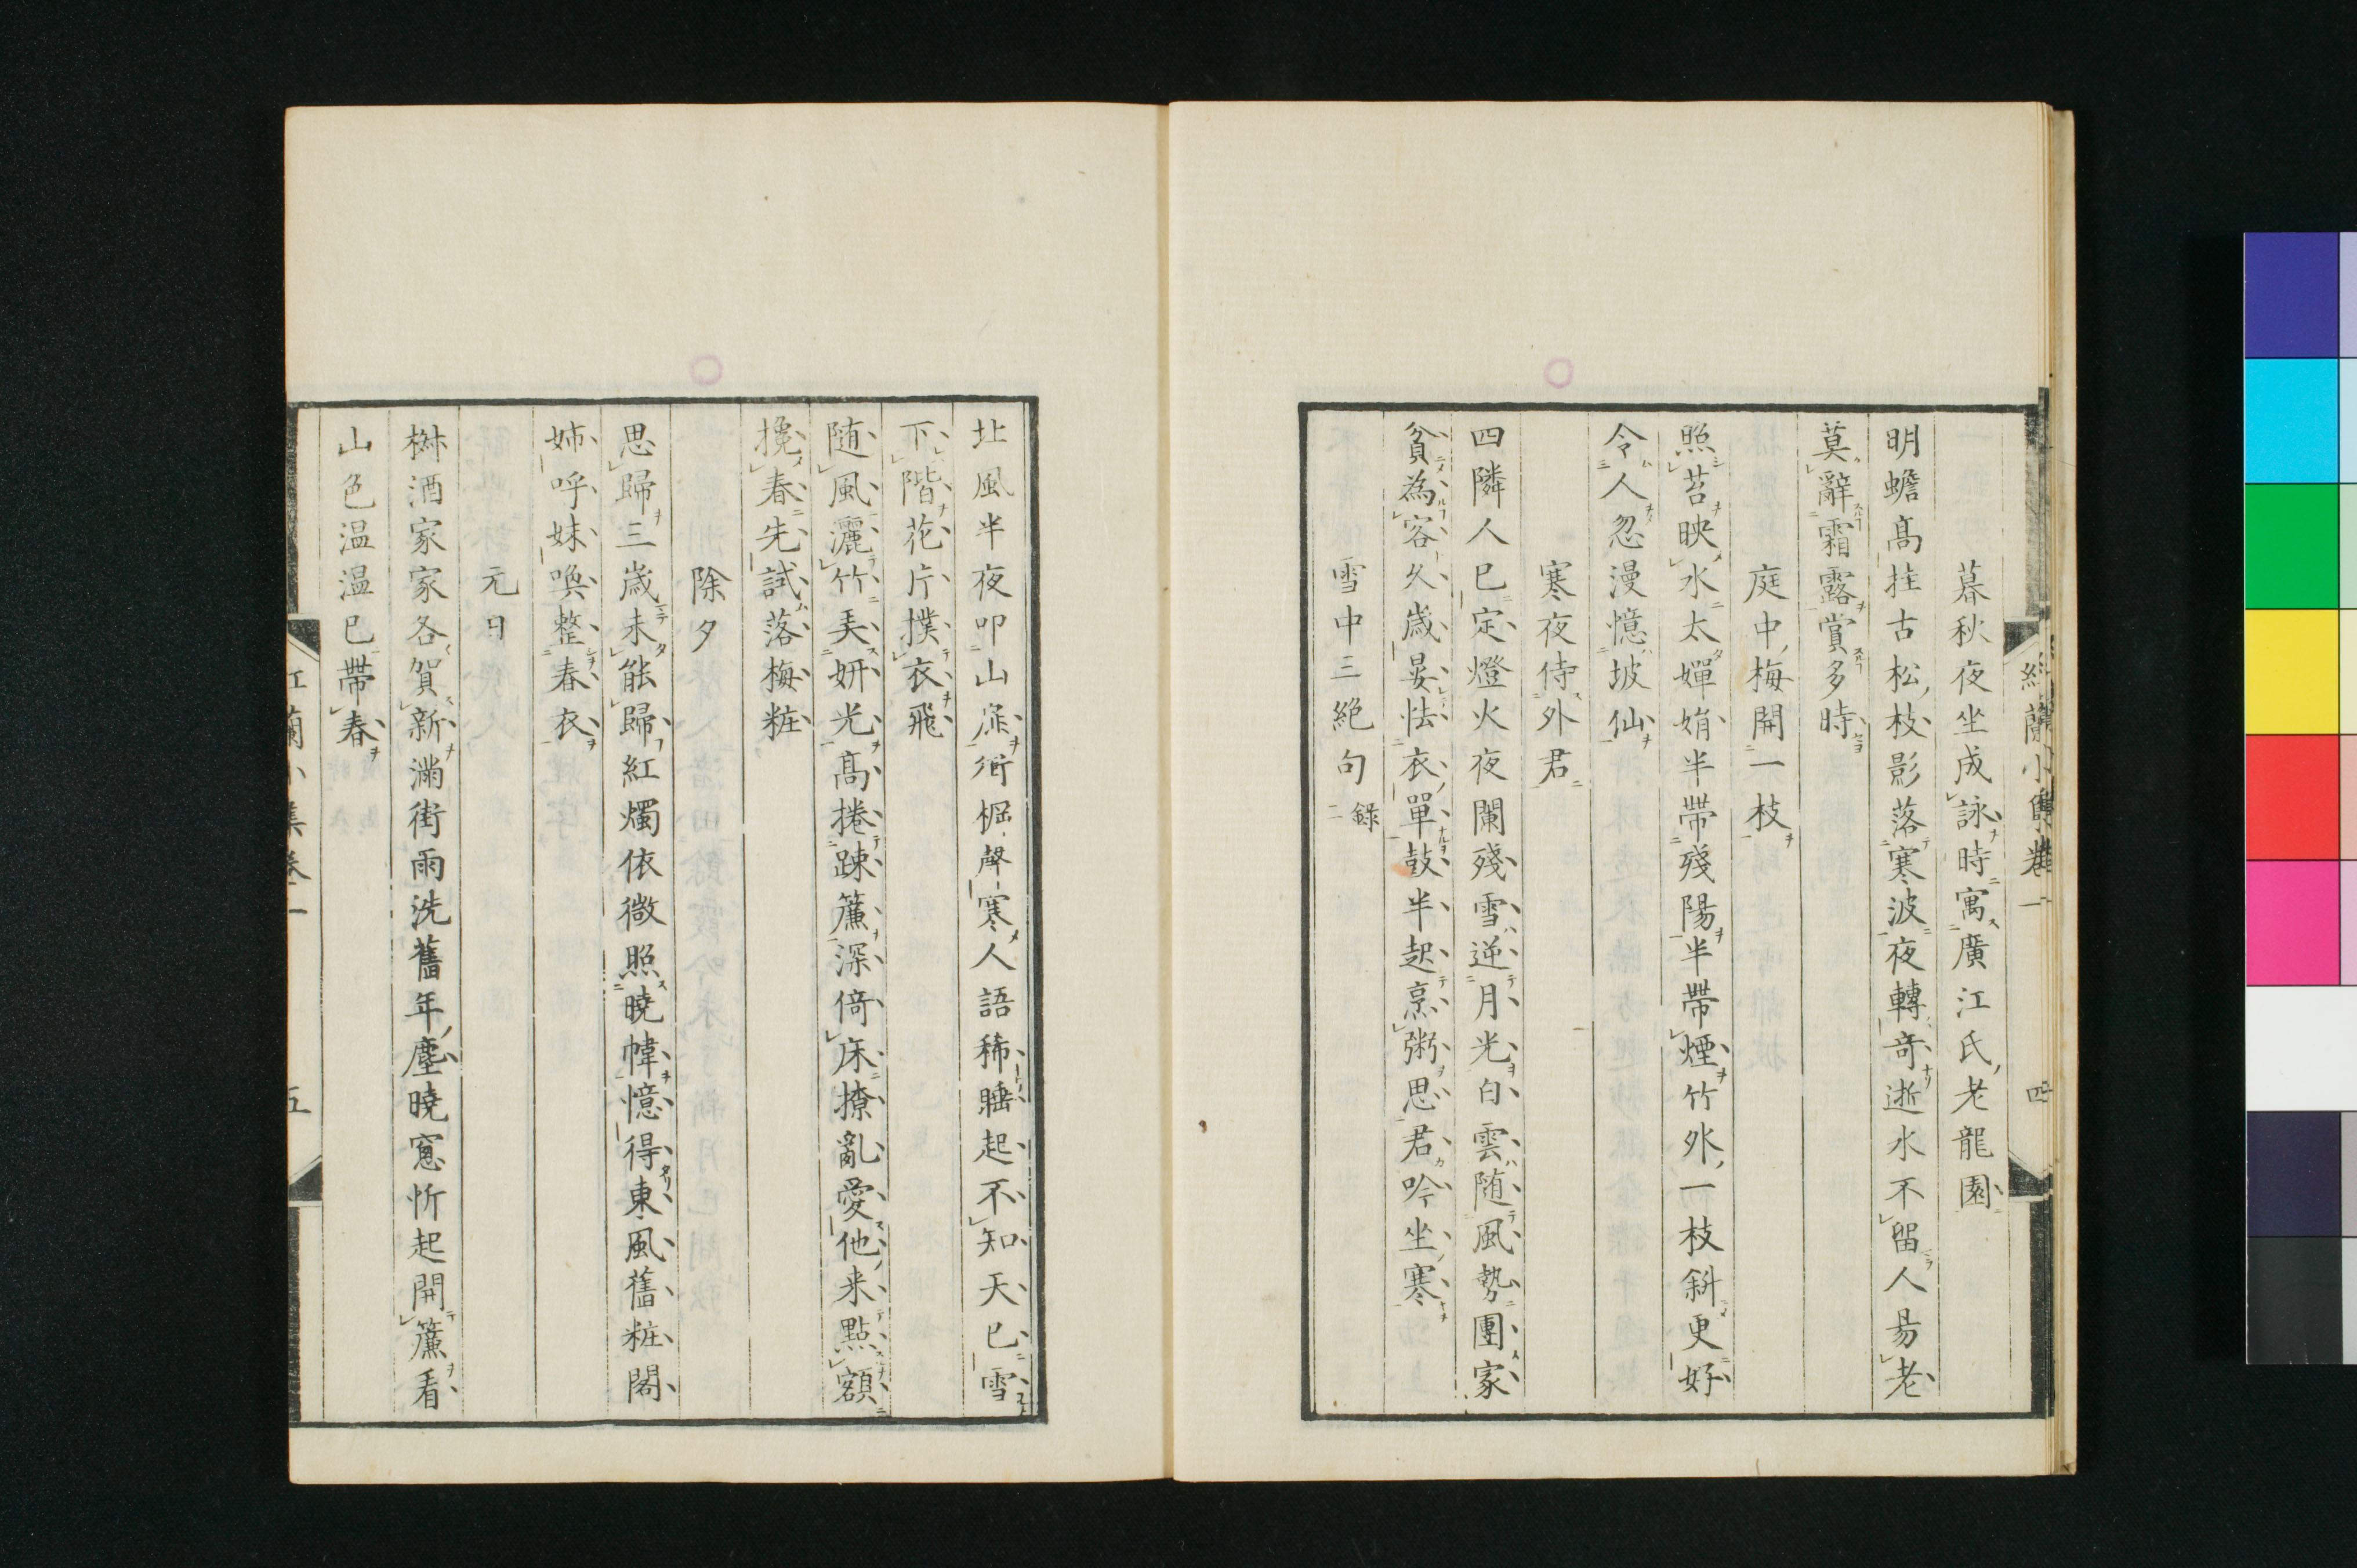 暮秋夜坐成詠時寓廣江氏老龍園
明蟾高挂古松枝影落寒波夜轉奇逝水不留人易老
莫辭霜露賞多時
庭中梅開一枝
照苔映水太嬋娟半帶殘陽半帶煙竹外一枝斜更好
令人忽漫憶坡仙
寒夜侍外君
四隣人已定燈火夜闌殘雪逆月光白雲随風勢團家
貧為客久歲晏怯衣單鼓半起烹粥思君吟坐寒
雪中三絶句 録二
北風半夜叩山扉街柝聲寒人語稀睡起不知天已雪
下階花片撲衣飛
随風灑竹弄妍光高捲踈簾深倚床撩亂愛他来點額
攙春先試落梅粧
除夕
思歸三歳未能歸紅燭依微照曉幃憶得東風舊粧閣
姉呼妹喚整春衣
元日
椒酒家家各賀新滿街雨洗舊年塵曉窻忻起開簾看
山色温温已帶春
紅蘭小集卷一
五